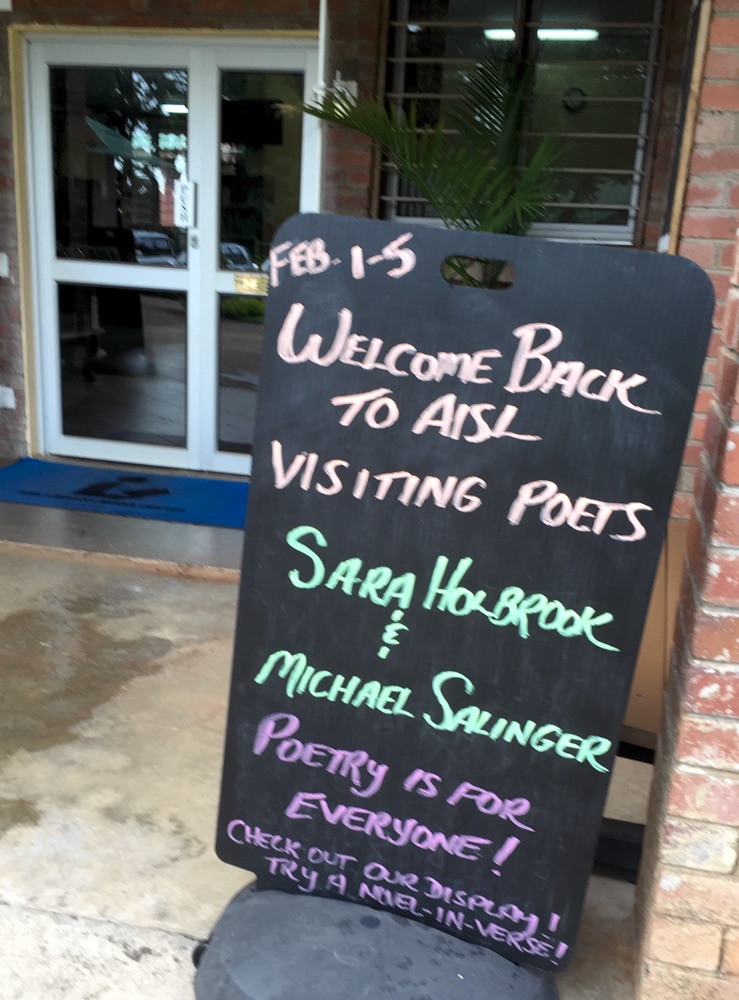 FEB. 1-5
WELCOME BACK
TO AISL
VISITING POETS
SARA HOLBROOK
&
MICHAEL SALINGER
POETRY IS FOR
EVERYONE!
CHECK OUT OUR DISPLAY!
TRY A NOVEL-IN-VERSE!